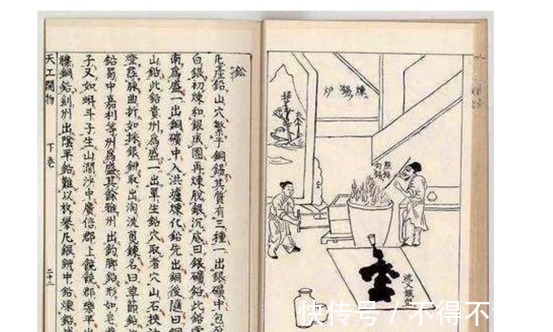 鉛
凡產鉛山穴繁于銅錫其質有三種一出銀礦中包
白銀初煉和銀成團再煉脫銀沉底曰銀礦鉛此鉛
南爲盛一出銅礦中入洪爐煉化鉛先出銅後隨曰
山鉛此鉛貴州爲盛一出單生鉛穴取者穴山石挾
燈尋脉曲折如採銀鉚取出淘洗煎鍊名曰草節鉛
鉛蜀中嘉利等州爲盛其餘雅州出釣脚鉛形如皂
子又如蝌斗子生山澗沙中廣信郡上饒饒郡樂平
雜銅鉛劍州出陰平鉛難以枚舉凡銀鉚中鉛煉
天工開物 下卷 二十二
煉錫炉
点鉛
勾錫
快传号/不得不